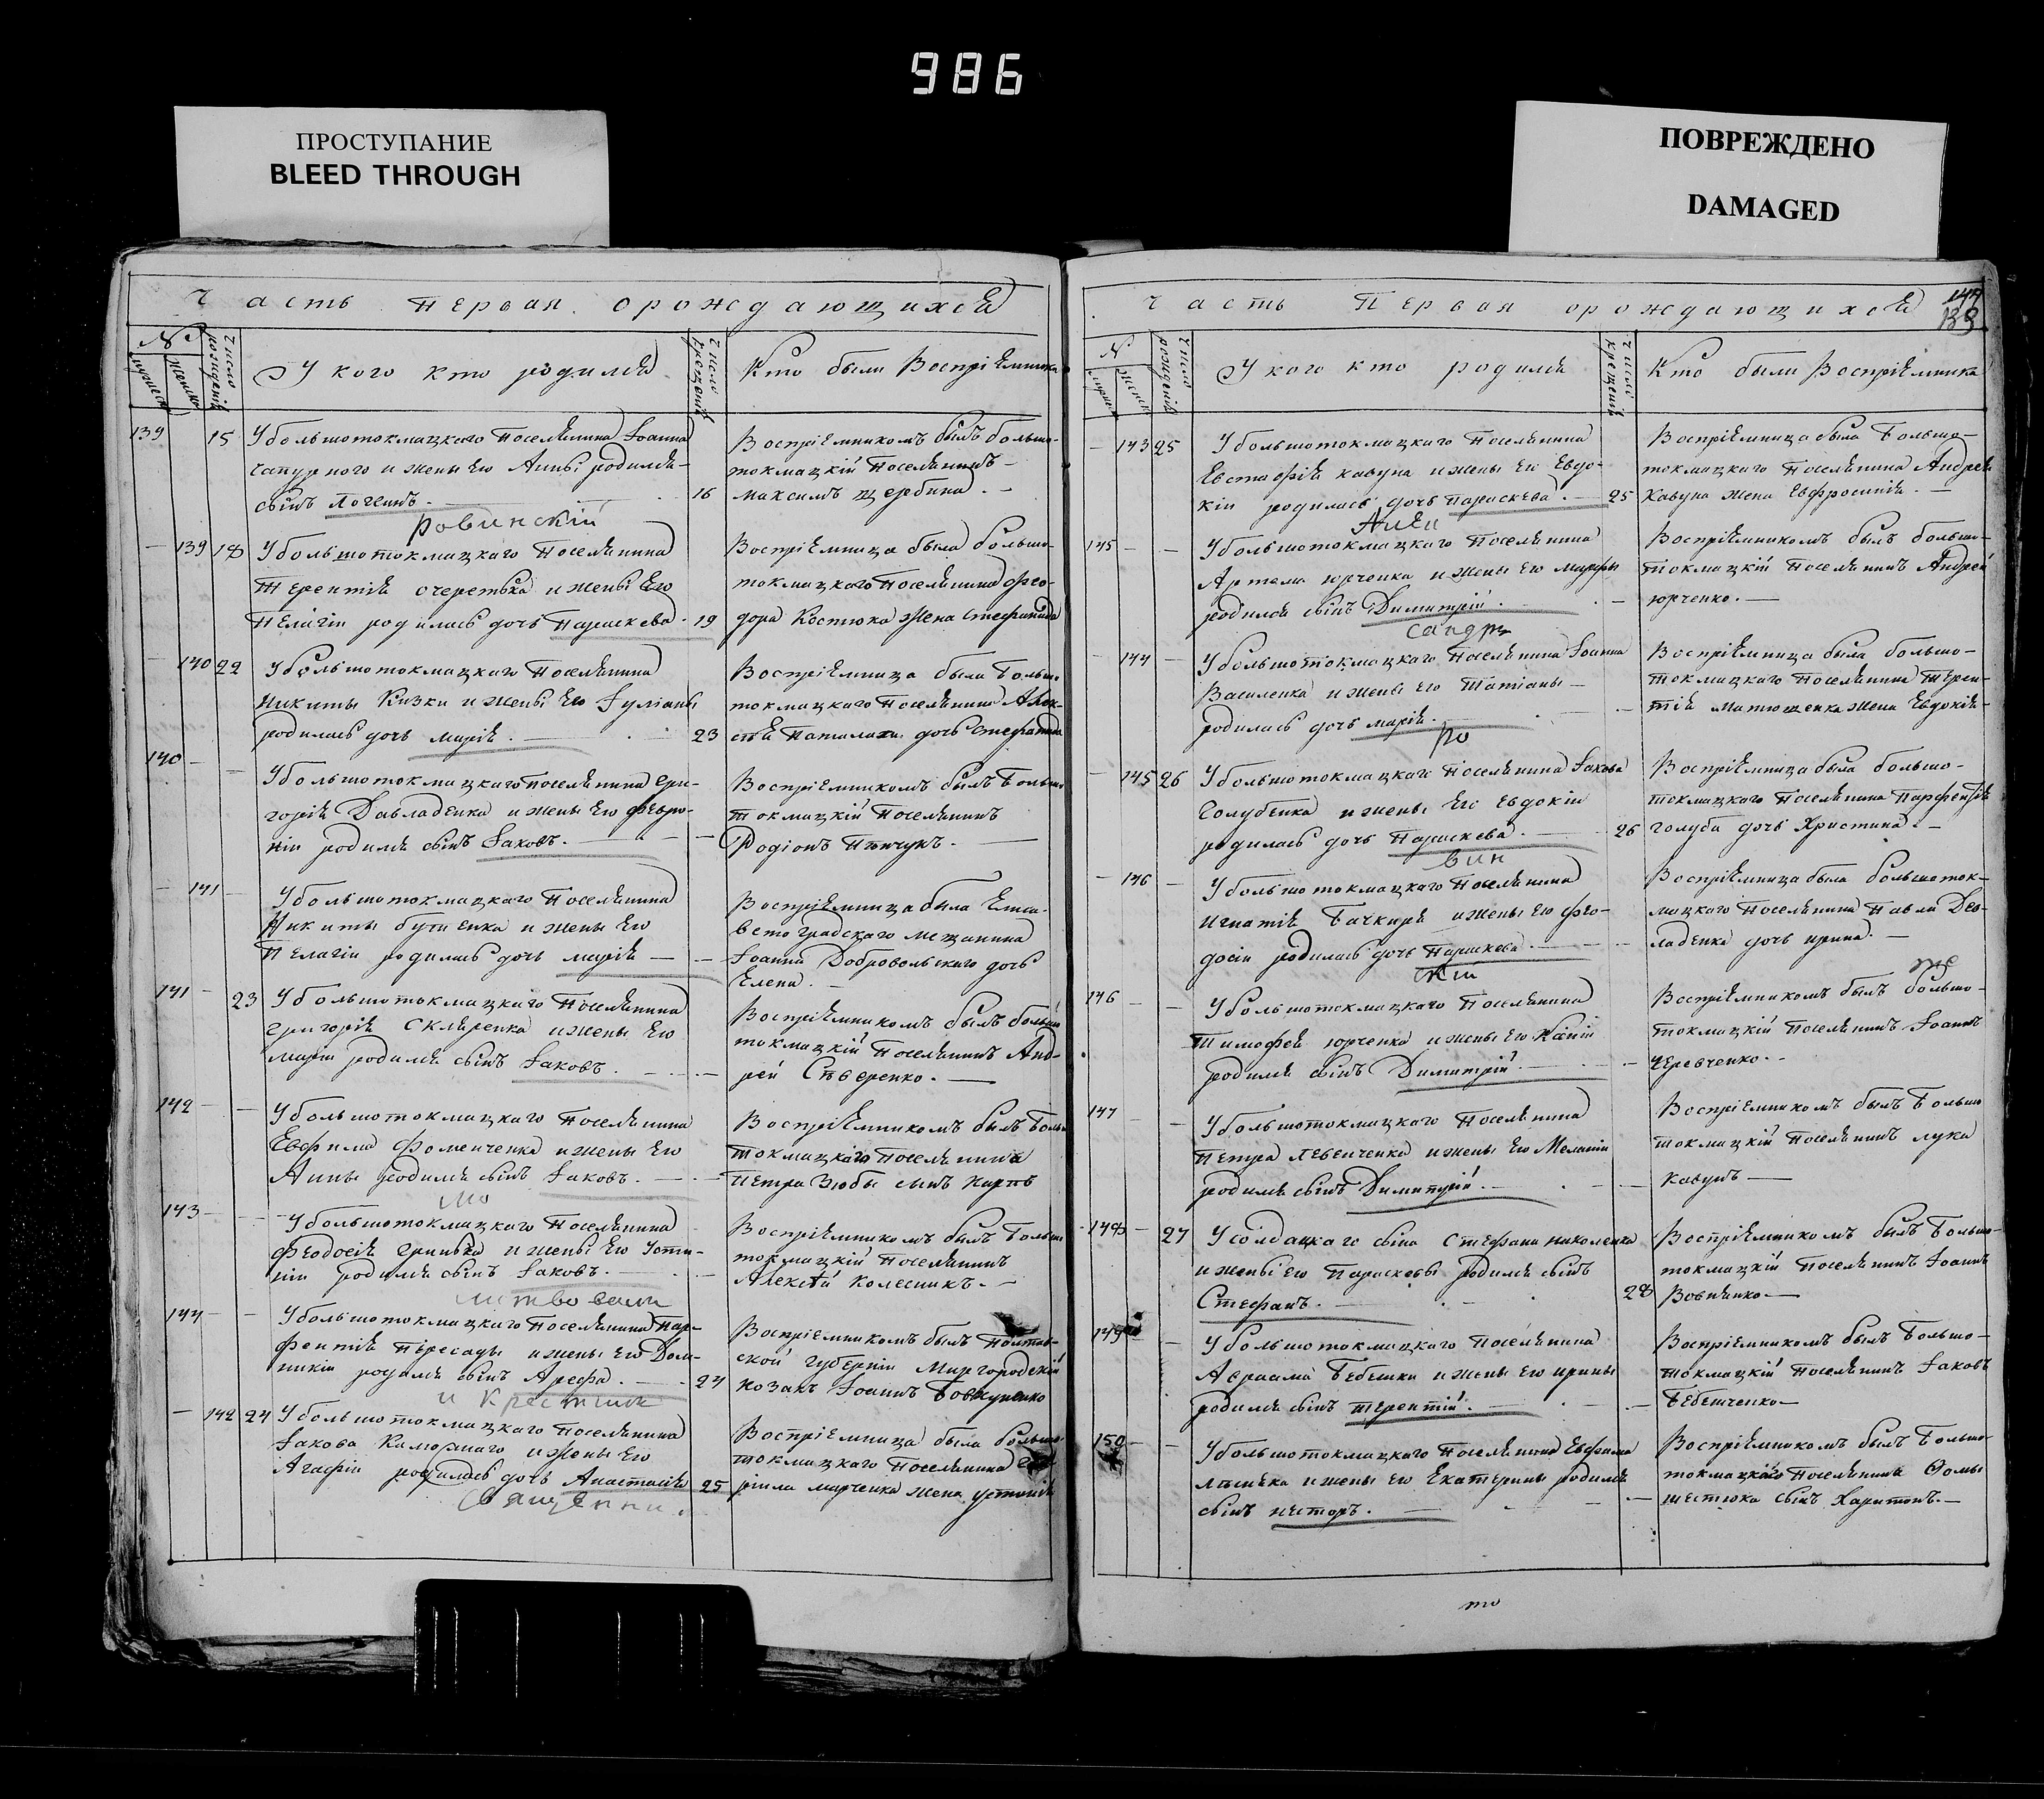 986
ПРОСТУПАНИЕ
BLEED THROUGH
ПОВРЕЖДЕНО
DAMAGED
Часть первая о рождающихся
№
У кого кто родился
Кто были Воспріемники
139 15 У большотокмацкаго Поселянина Іоанна
Чапурного и жены Его Анны родился
сынъ Логгинъ. 16
Воспріемникомъ былъ большо-
токмацкій Поселянинъ
Максимъ Щербина.
ровинскій
139 18 У большотокмацкаго Поселянина
Терентія Очеретька и жены Его
Пелагіи родилась дочь Параскева. 19
Воспріемница была большо-
токмацкаго Поселянина Фео-
дора Костюка жена Стефанида
140 22 У большотокмацкаго Поселянина
Никиты Кизки и жены Его Іуліаны
родилась дочь Марія. 23
Воспріемница была Больш-
токмацкаго Поселянина Алек-
сѣя дочь Стефанида
140 У большотокмацкаго поселянина Гри-
горія Давладенка и жены Его Февро-
ніи родился сынъ Іаковъ.
Воспріемникомъ былъ Больш
токмацкій Поселянинъ
Родіонъ Пѣнчукъ.
141 У большотокмацкаго Поселянина
Никиты Бутенка и жены Его
Пелагіи родилась дочь Марія
Воспріемница была Елиса-
ветоградскаго мещанина
Іоанна Добровольскаго дочь
Елена.
141 23 У большотокмацкаго Поселянина
Григорія Скляренка и жены Его
Маріи родился сынъ Іаковъ.
Воспріемникомъ былъ больш
токмацкій Поселянинъ Анд-
рей Сѣверенко.
142 У большотокмацкаго Поселянина
Евфима Фоменченка и жены Его
Анны родился сынъ Іаковъ.
Воспріемникомъ былъ Больш
токмацкаго Поселянина
Петра Зюбы сынъ Карпъ
мо
143 У большотокмацкаго Поселянина
Феодосія Гринька и жены Его Усти-
ніи родился сынъ Іаковъ.
Воспріемникомъ былъ Больш
токмацкій Поселянинъ
Алексѣй Колесникъ.
литвовали
144 У большотокмацкаго Поселянина Пар-
фентія Пересады и жены Его Дом-
никіи родился сынъ Арефа. 24
Воспріемникомъ былъ Полтав-
ской губерніи Миргородскій
козакъ Іоаннъ Бовкуненко
и Крестили
142 24 У большотокмацкаго Поселянина
Іакова Каморнаго и жены Его
Агафіи родилась дочь Анастасія 25
Воспріемница была большо-
токмацкаго Поселянина
Марченка жена Устинія
Священни
Часть Первая о рождающихся
№
У кого кто родился
Кто были Воспріемники
143 25 У большотокмацкаго Поселянина
Евстафія Кавуна и жены Его Евдо-
кіи родилась дочь Параскева. 25
Воспріемница была Большо-
токмацкаго Поселянина Андрея
Кавуна жена Евфросинія.
Алек
145 У большотокмацкаго Поселянина
Артема Юрченка и жены Его Марфы
родился сынъ Димитрій.
Воспріемникомъ былъ большо-
токмацкій Поселянинъ Андрей
Юрченко.
сандръ
144 У большотокмацкаго Поселянина Іоанна
Василенка и жены Его Татіаны
родилась дочь Марія.
Воспріемница была большо-
токмацкаго Поселянина Терен-
тія Матюшенка жена Евдокія
ро
145 26 У большотокмацкаго Поселянина Іакова
Голубенка и жены Его Евдокіи
родилась дочь Параскева. 26
Воспріемница была большо-
токмацкаго Поселянина Парфентія
Голуба дочь Христина.
вин
146 У большотокмацкаго Поселянина
Игнатія Бачкиря и жены Его Фео-
досіи родилась дочь Параскева.
Воспріемница была большоток-
мацкаго Поселянина Павла Дво-
ладенка дочь Ирина.
146 У большотокмацкаго Поселянина
Тимофея Юрченка и жены Его
родился сынъ Димитрій.
Воспріемникомъ былъ большо-
токмацкій Поселянинъ Іоаннъ
Черевченко.
147 У большотокмацкаго Поселянина
Петра Левенченка и жены Его Меланіи
родился сынъ Димитрій.
Воспріемникомъ былъ Больш
токмацкій Поселянинъ Лука
Кавунъ
148 27 У солдацкаго сына Стефана Николенка
и жены Его Параскевы родился сынъ
Стефанъ. 28
Воспріемникомъ былъ Больш
токмацкій Поселянинъ Іоаннъ
Вовненко
149 У большотокмацкаго Поселянина
Авраама Бебешки и жены Его Ирины
родился сынъ Терентій.
Воспріемникомъ былъ Большо-
токмацкій Поселянинъ Іаковъ
Бебешченко
150 У большотокмацкаго Поселянина Евфима
и жены Его Екатерины родился
сынъ Несторъ.
Воспріемникомъ былъ Большо-
токмацкаго Поселянина Ѳомы
Шестюка сынъ Харитонъ.
то